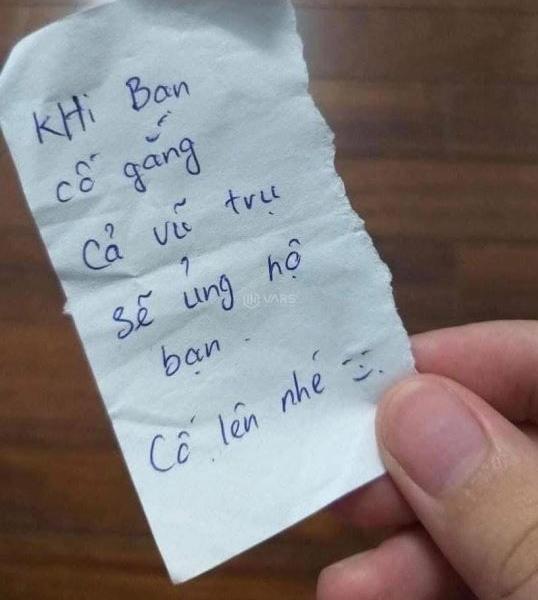 KHi Bạn
cố gắng
Cả vũ trụ
sẽ ủng hộ
bạn.
Cố lên nhé :).
VARS